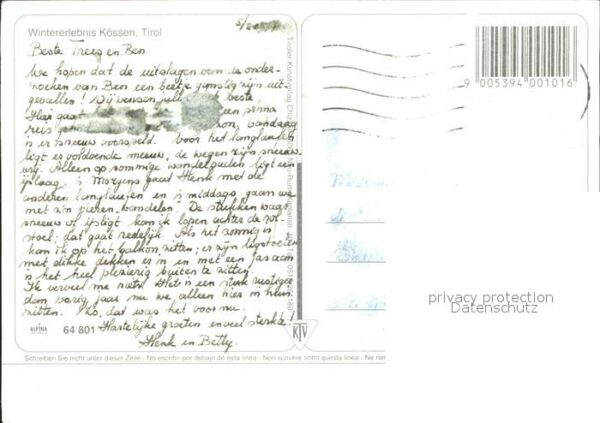 Wintererlebnis Kössen, Tirol
Beste Trees en Ben
We hopen dat de uitslagen van de onder-
zoeken van Ben een beetje gunstig zijn uit-
gevallen! Wij wensen jullie beste.
Hier gaat een prima
reis zon, vandaag
is er sneeuw voorspeld. Voor het langlaufen
ligt er voldoende sneeuw, de wegen zijn sneeuw-
vrij. Alleen op sommige wandelpaden ligt een
ijslaag. 's Morgens gaat Henk met de
anderen langlaufen en 's middags gaan we
met z'n vieren wandelen. De stukken waar
sneeuw of ijs ligt kan ik lopen achter de rol-
stoel, dat gaat redelijk. Als het zonnig is
kan ik op het balkon zitten; er zijn ligstoelen
met dikke dekken er in en met een jas aan
is het heel plezierig buiten te zitten.
Ik verveel me niets. Het is een stuk rustiger
dan vorig jaar nu we alleen hier in huis
zitten. Zo, dat was het voor nu.
Hartelijke groeten en veel sterkte!
Henk en Betty.
ALPINA
64 801
KTV
Schreiben Sie nicht unter dieser Zeile - No escribir por debajo de esta línea - Non scrivere sotto questa linea - Ne
9 005394 001016
privacy protection
Datenschutz